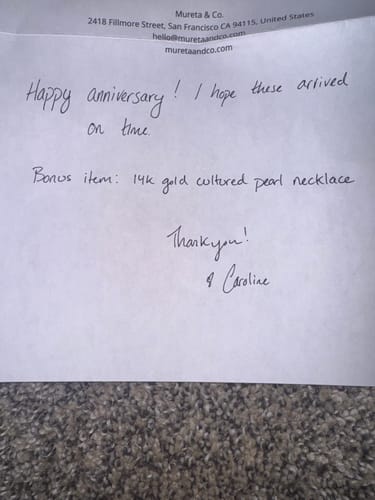 Mureta & Co.
2418 Fillmore Street, San Francisco CA 94115, United States
hello@muretaandco.com
muretaandco.com
Happy anniversary! I hope these arrived
on time.
Bonus item: 14k gold cultured pearl necklace
Thank you!
Caroline